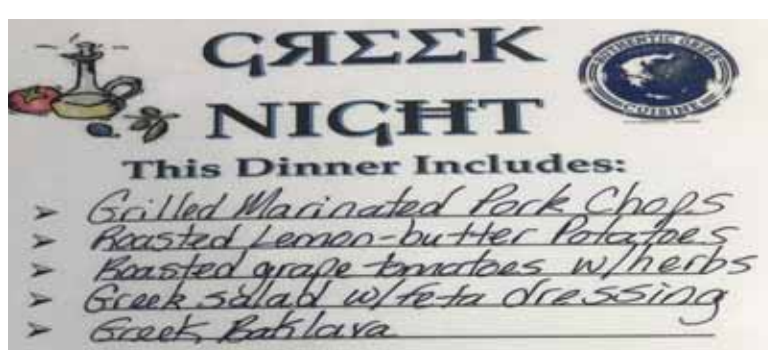 GЯΣΣK
NIGĦT
AUTHENTIC GREEK
CUISINE
This Dinner Includes:
➢ Grilled Marinated Pork Chops
➢ Roasted Lemon-butter Potatoes
➢ Roasted grape tomatoes w/herbs
➢ Greek salad w/feta dressing
➢ Greek Baklava